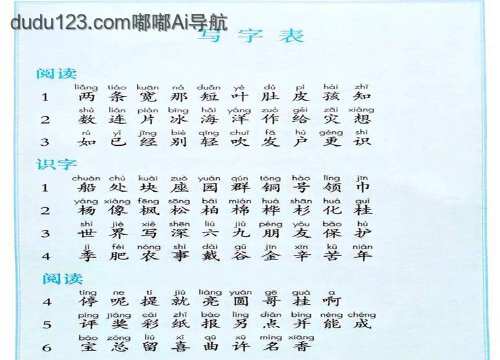 dudu123.com嘟嘟Ai导航
写字表
阅读
liǎng tiáo kuān nà duǎn yè dù pí hái zhī
1 两 条 宽 那 短 叶 肚 皮 孩 知
shù lián piàn bīng hǎi yáng zuò gěi zāi xiǎng
2 数 连 片 冰 海 洋 作 给 灾 想
rú yǐ jīng bié qīng chuī fā hù gēng shí
3 如 已 经 别 轻 吹 发 户 更 识
识字
chuán chù kuài zuò yuán qún tóng hào lǐng jīn
1 船 处 块 座 园 群 铜 号 领 巾
yáng xiàng fēng sōng bǎi mián huà shān huà guì
2 杨 像 枫 松 柏 棉 桦 杉 化 桂
shì jiè xiě shēn liù jiǔ péng yǒu bǎo hù
3 世 界 写 深 六 九 朋 友 保 护
jì féi nóng shì dài gǔ jīn xīn kǔ nián
4 季 肥 农 事 戴 谷 金 辛 苦 年
阅读
tíng ne tí jiù liàng yuán gē guà a
4 停 呢 提 就 亮 圆 哥 挂 啊
píng jiǎng cǎi zhǐ bào lìng diǎn bìng néng chéng
5 评 奖 彩 纸 报 另 点 并 能 成
bǎo zǒng liú xǐ qǔ xǔ míng xiāng
6 宝 总 留 喜 曲 许 名 香